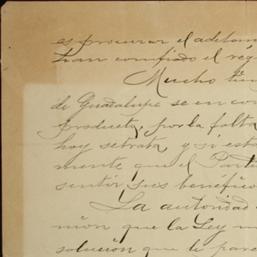 es procurar el adelan
han confiado el ré
Mucho tie
de Guadalupe se en con
producta, por la falta
hoy se trata y si esta
mente que el
sentir sus benefico
La autoridad
nión que la Ley
solución que le pare